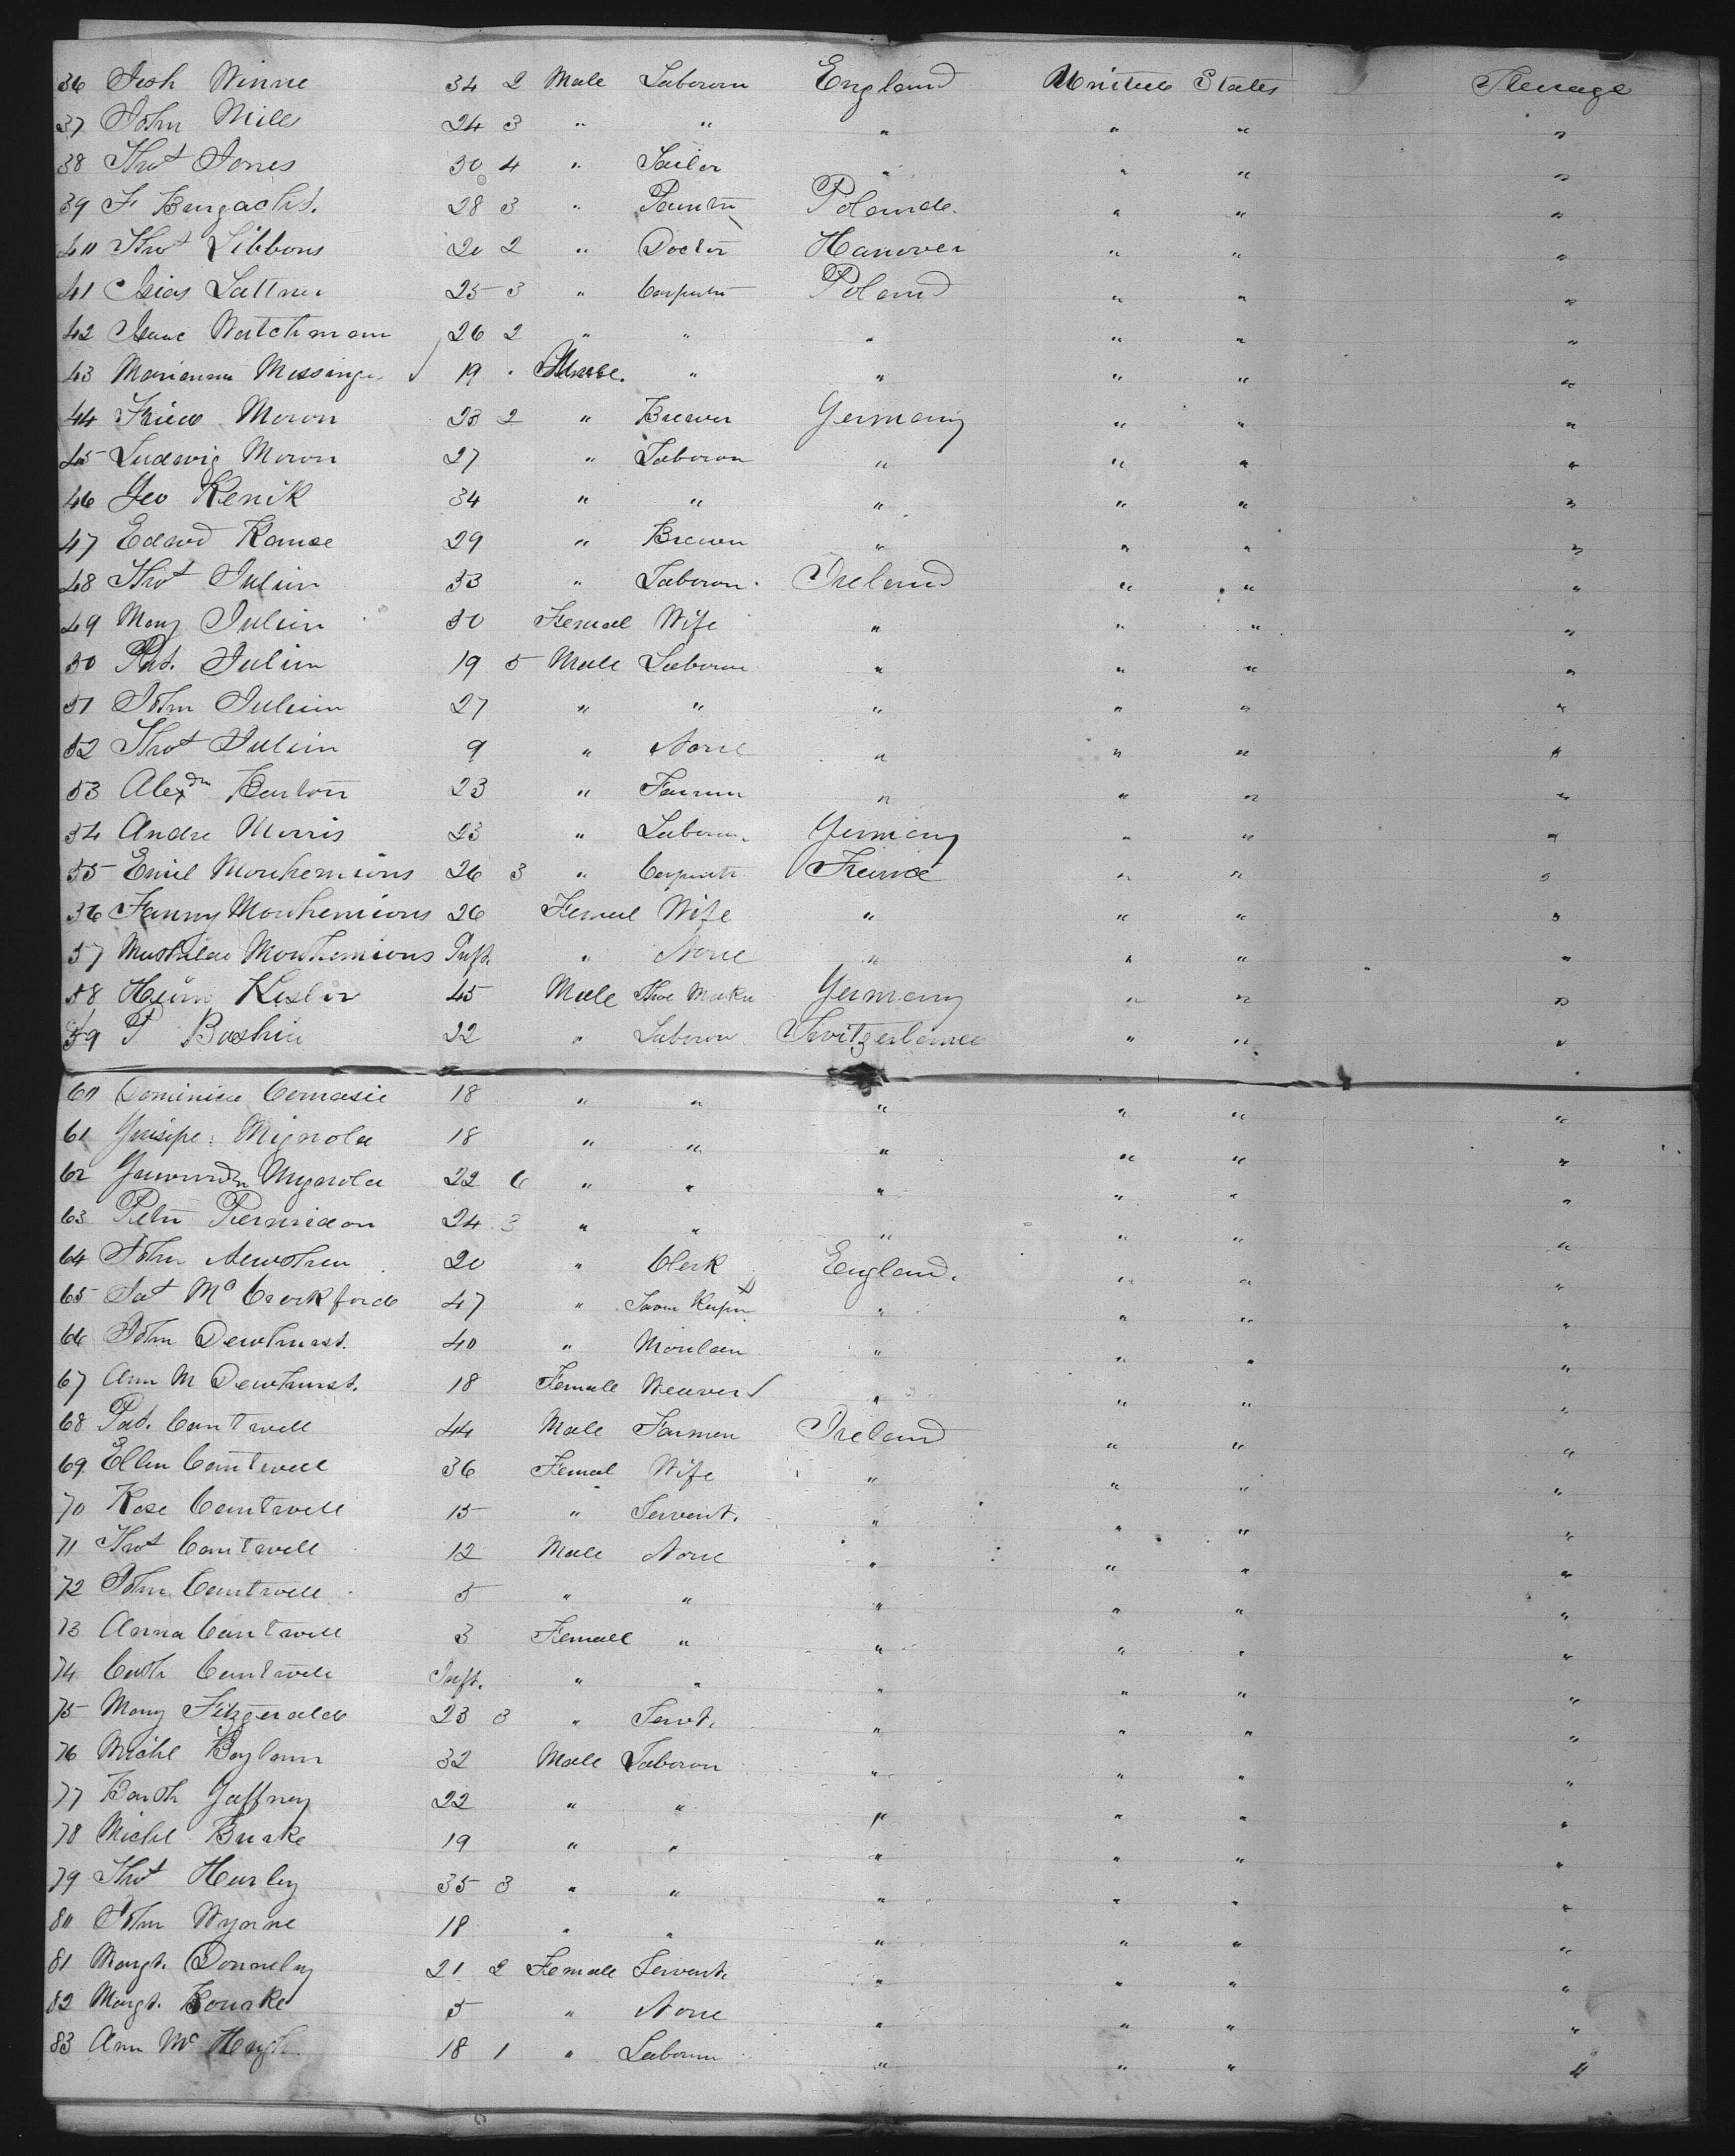 36 Josh Winne 34 2 Male Laborour England United States Steerage
37 John Mills 24 3 " " " " " "
38 Thos Jones 30 4 " Sailor " " " "
39 F 28 3 " Poland " " "
40 Thos Libbons 20 2 " Doctor Hanover " " "
41 Lattner 25 3 " Carpenter Poland " " "
42 Isaac Watchmann 26 2 " " " " " "
43 Marianna Messinger 19 " " " " "
44 Moron 23 2 " Brewer Germany " " "
45 Ludwig Moron 27 " Laborour " " " "
46 Geo Renik 34 " " " " " "
47 Edawd 29 " Brewer " " " "
48 Thos Julien 33 " Laborour Ireland " " "
49 Mary Julien 30 Female Wife " " " "
50 Pat. Julien 19 5 Male Laborour " " " "
51 John Julien 27 " " " " " "
52 Thos Julien 9 " None " " " "
53 Alexdr Barton 23 " Farmer " " " "
54 Andre Morris 23 " Laborour Germany " " "
55 Emil Mouhemions 26 3 " Carpenter France " " "
56 Fanny Mouhemions 26 Female Wife " " " "
57 Mouhemions Inft. " None " " " "
58 Kesler 45 Male Shoe Maker Germany " " "
59 P 22 " Laborour Switzerland " " "
60 Dominica Comasie 18 " " " " " "
61 Mignola 18 " " " " " "
62 Mygnola 22 6 " " " " " "
63 Peter 24 3 " " " " " "
64 John 20 " Clerk England. " " "
65 Crockford 47 " " " " "
66 John Dewhurst. 40 " " " " "
67 Ann M Dewhurst. 18 Female Weaver " " " "
68 Pat. Cantwell 44 Male Farmer Ireland " " "
69 Ellen Cantwell 36 Femal Wife " " " "
70 Rose Cantwell 15 " Servent. " " " "
71 Thos Cantwell 12 Male None " " " "
72 John Cantwell 5 " " " " " "
73 Anna Cantwell 3 Female " " " " "
74 Cath Cantwell Inft. " " " " " "
75 Mary Fitzgerald 23 3 " Servt. " " " "
76 Michl Boylann 32 Male Laborour " " " "
77 Barth Gaffney 22 " " " " " "
78 Michl Burke 19 " " " " " "
79 Thos Hurley 35 3 " " " " " "
80 John Wynne 18 " " " " " "
81 Margt. Donnelay 21 2 Female Servent. " " " "
82 Margt. Bourke 5 " None " " " "
83 Ann Mc Hugh 18 1 " Laborour " " " "